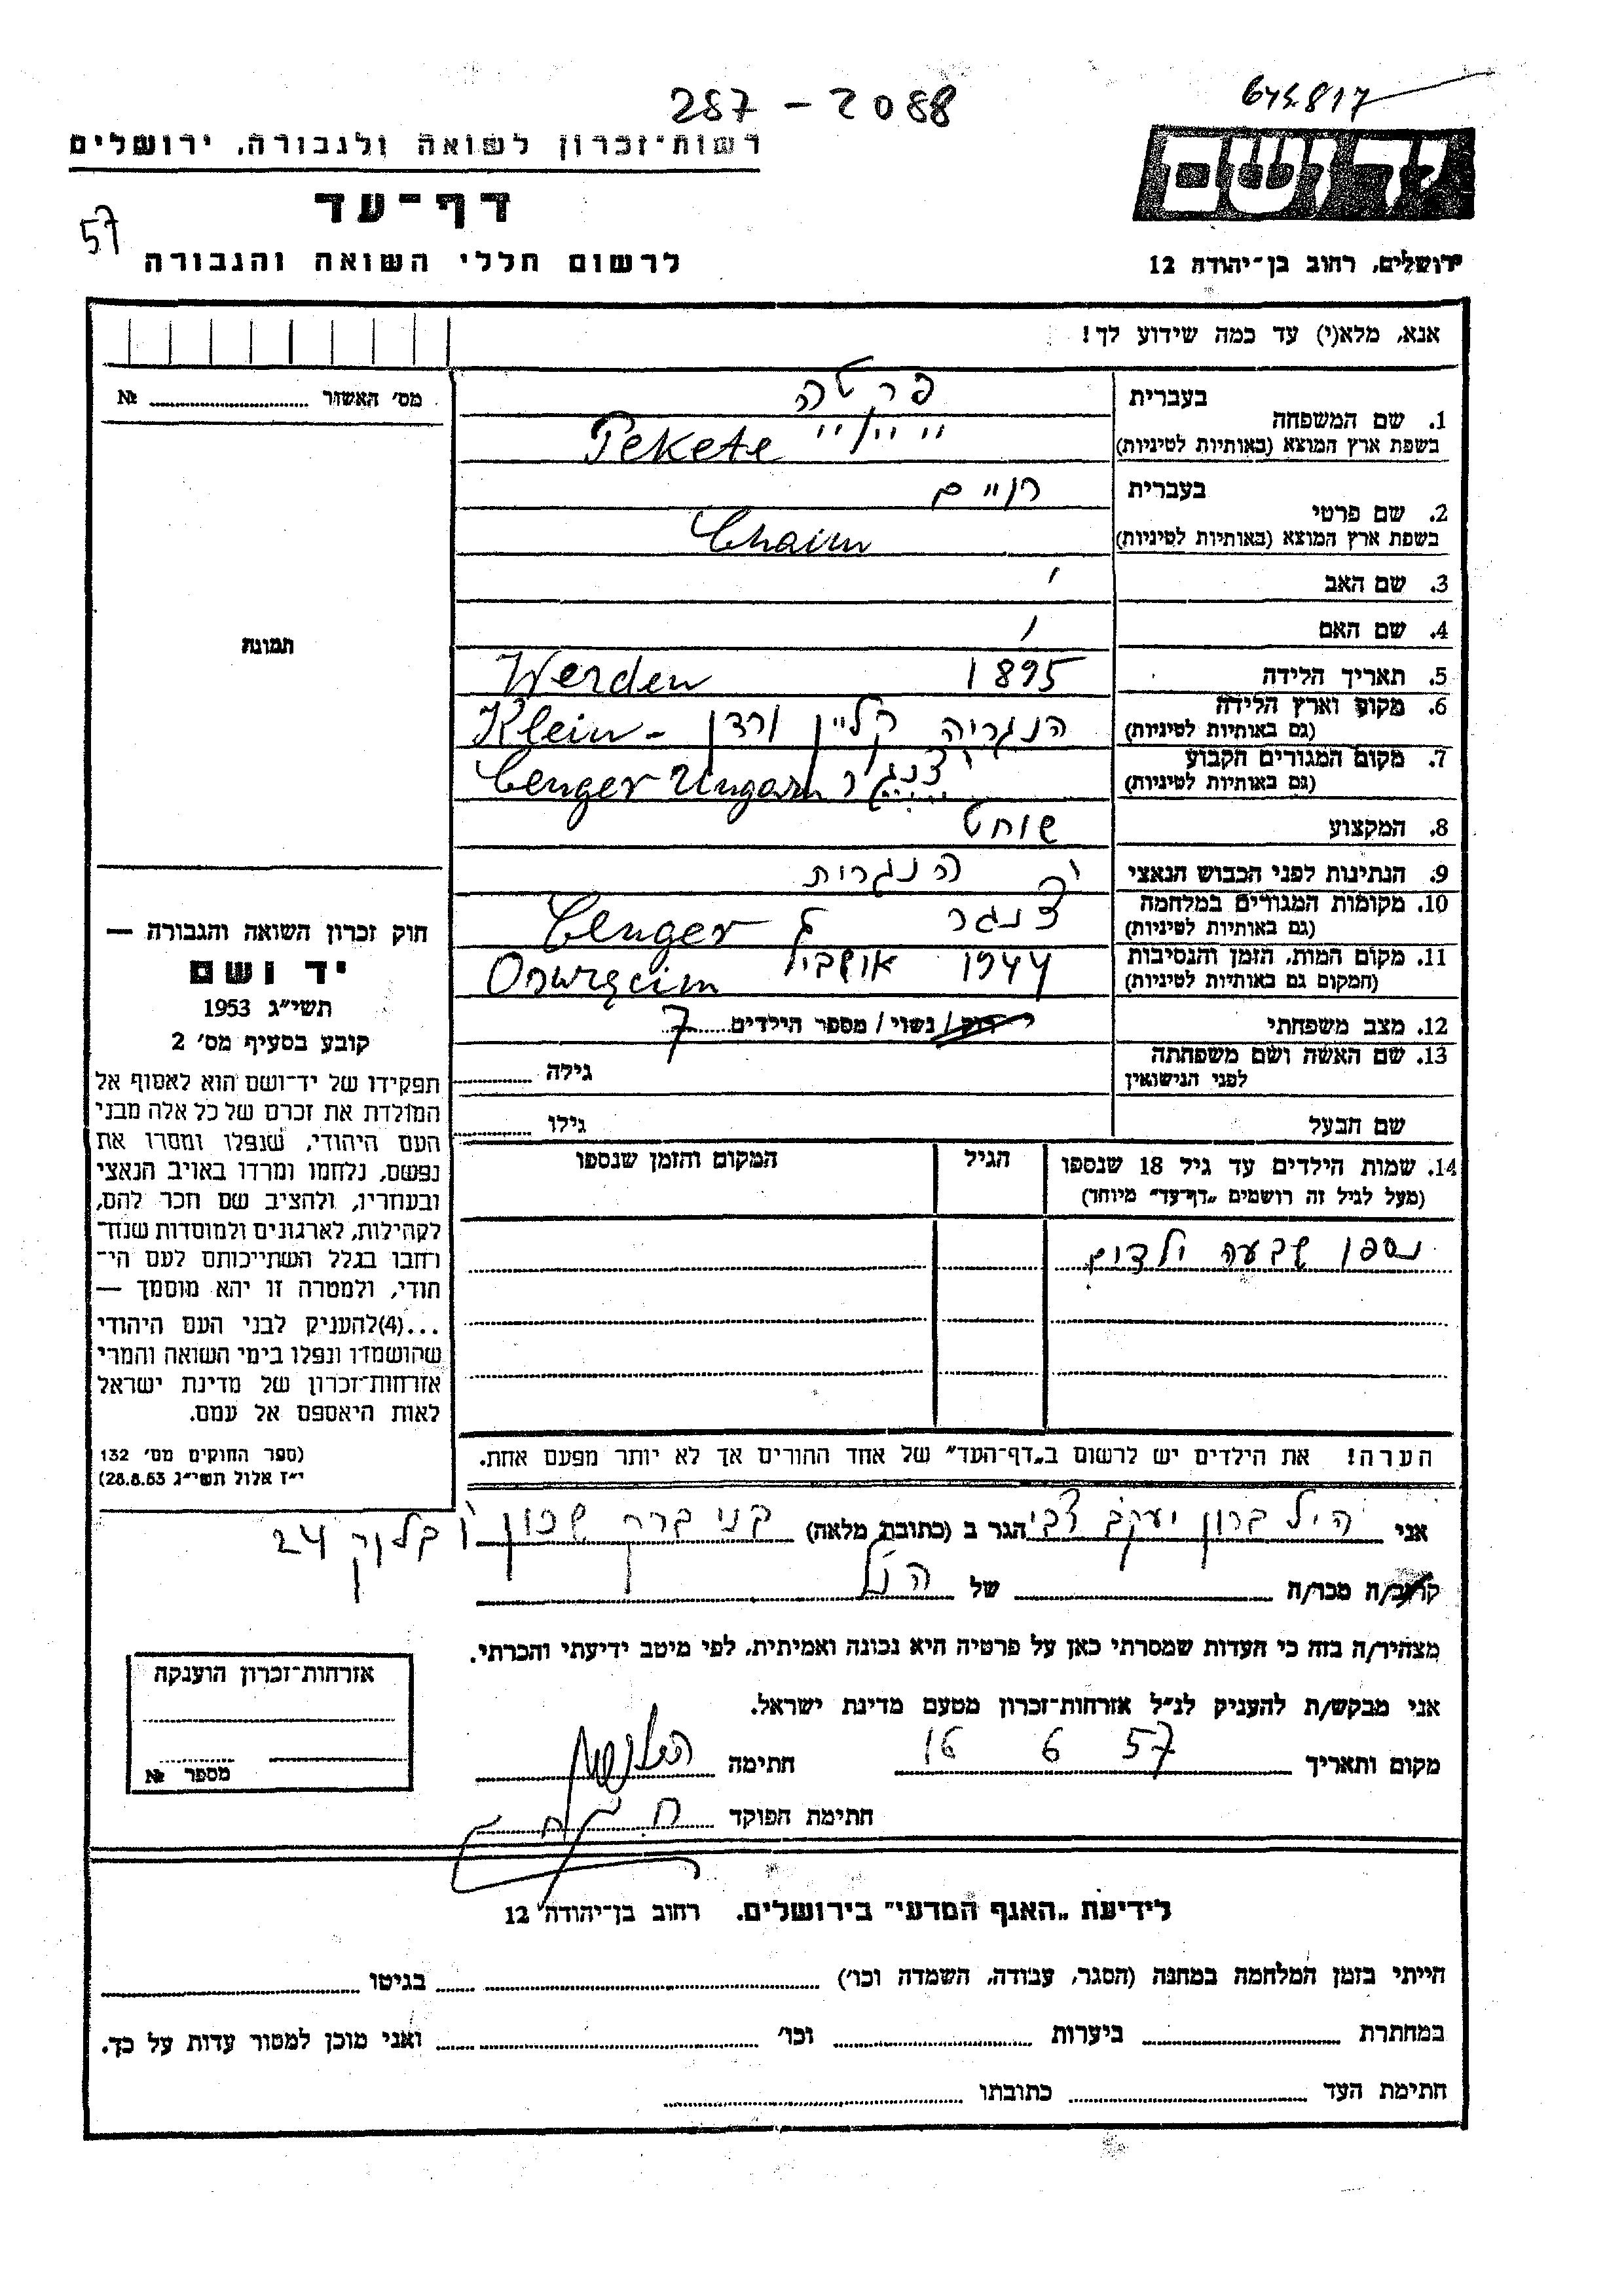 287 - 2088
645817
רשות-זכרון לשואה ולגבורה, ירושלים
יד ושם
דף-עד
57
לרשום חללי השואה והגבורה
ירושלים, רחוב בן-יהודה 12
אנא, מלא(י) עד כמה שידוע לך!
מס' האשור № ............
1. שם המשפחה
בעברית
בשפת ארץ המוצא (באותיות לטיניות)
Fekete
2. שם פרטי
בעברית חיים
בשפת ארץ המוצא (באותיות לטיניות)
Chaim
3. שם האב
4. שם האם
תמונה
5. תאריך הלידה 1895
Werden
6. מקום וארץ הלידה
(גם באותיות לטיניות)
הנגריה קליין ורדן Klein-
7. מקום המגורים הקבוע
(גם באותיות לטיניות)
צנגר Cenger Ungarn
8. המקצוע שוחט
9. הנתינות לפני הכבוש הנאצי הנגרית
10. מקומות המגורים במלחמה
(גם באותיות לטיניות)
צנגר Cenger
11. מקום המות, הזמן והנסיבות
(המקום גם באותיות לטיניות)
1944
12. מצב משפחתי רוק/ נשוי/ מספר הילדים 7
13. שם האשה ושם משפחתה
לפני הנישואין
גילה ............
שם הבעל גילו ............
14. שמות הילדים עד גיל 18 שנספו
(מעל לגיל זה רושמים „דף-עד" מיוחד)
הגיל
המקום והזמן שנספו
נספו שבעה ילדים
הערה! את הילדים יש לרשום ב„דף-העד" של אחד ההורים אך לא יותר מפעם אחת.
חוק זכרון השואה והגבורה —
יד ושם
תשי"ג 1953
קובע בסעיף מס' 2
תפקידו של יד-ושם הוא לאסוף אל
המולדת את זכרם של כל אלה מבני
העם היהודי, שנפלו ומסרו את
נפשם, נלחמו ומרדו באויב הנאצי
ובעוזריו, ולהציב שם וזכר להם,
לקהילות, לארגונים ולמוסדות שנח-
רבו בגלל השתייכותם לעם הי-
הודי, ולמטרה זו יהא מוסמך —
...(4)להעניק לבני העם היהודי
שהושמדו ונפלו בימי השואה והמרי
אזרחות-זכרון של מדינת ישראל
לאות היאספם אל עמם.
(ספר החוקים מס' 132
י"ז אלול תשי"ג 28.8.53)
אני היל ברון יעקב צבי הגר ב (כתובת מלאה) בני ברק שכון ו בלוק 24
קרוב/ה מכר/ה ............ של הנ"ל
מצהיר/ה בזה כי העדות שמסרתי כאן על פרטיה היא נכונה ואמיתית, לפי מיטב ידיעתי והכרתי.
אני מבקש/ת להעניק לנ"ל אזרחות-זכרון מטעם מדינת ישראל.
מקום ותאריך 16 6 57 חתימה
חתימת הפוקד
אזרחות-זכרון הוענקה
מספר №
לידיעת „האגף המדעי" בירושלים. רחוב בן-יהודה 12
הייתי בזמן המלחמה במחנה (הסגר, עבודה, השמדה וכו') ............ בגיטו ............
במחתרת ............ ביערות ............ וכו' ............ ואני מוכן למסור עדות על כך.
חתימת העד ............ כתובתו ............